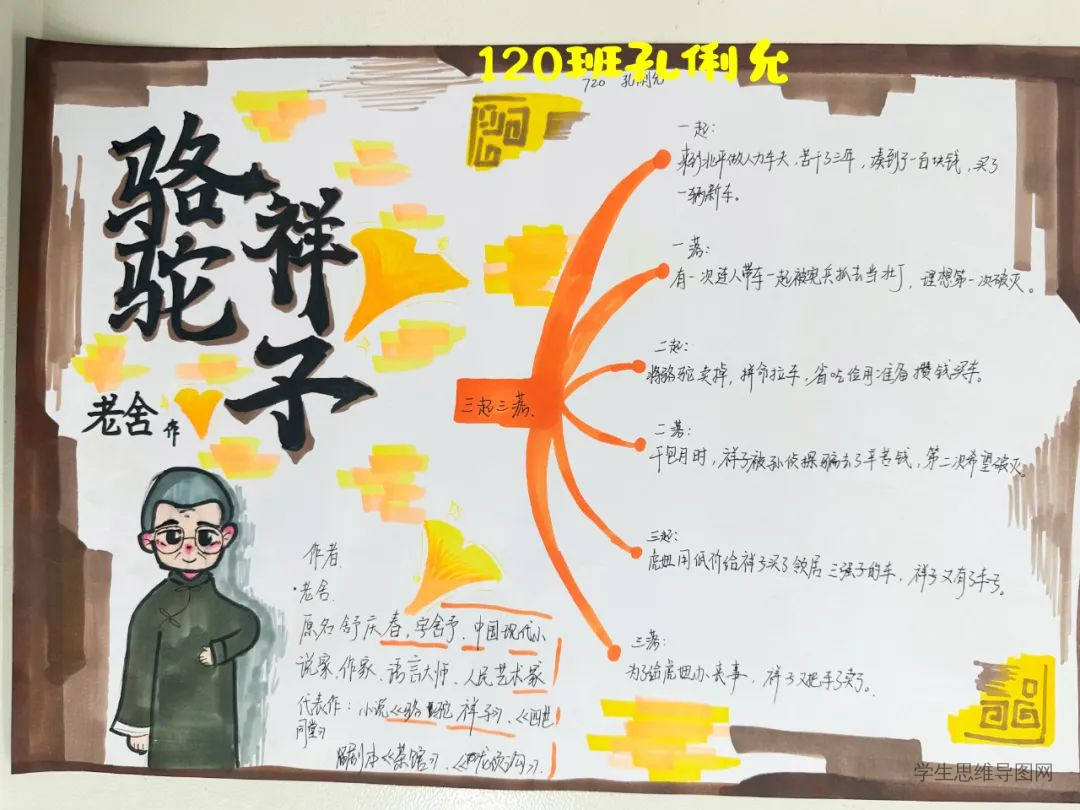 120班孔俐允
720 孔俐允
骆驼
祥子
老舍 作
三起三落.
一起:
来到北平做人力车夫,苦干了三年,凑到了一百块钱,买了
一辆新车。
一落:
有一次连人带车一起被宪兵抓去当壮丁,理想第一次破灭。
二起:
将骆驼卖掉,拼命拉车、省吃俭用准备攒钱买车。
二落:
干包月时,祥子被孙侦探骗去了辛苦钱,第二次希望破灭。
三起:
虎妞用低价给祥子买了邻居二强子的车,祥子又有了车了。
三落:
为了给虎妞办丧事,祥子又把车子卖了.
作者.
·老舍.
原名舒庆春,字舍予、中国现代小
说家、作家、语言大师、人民艺术家
代表作:小说《骆驼祥子》、《四世
同堂》
剧本《茶馆》、《龙须沟》.
学生思维导图网